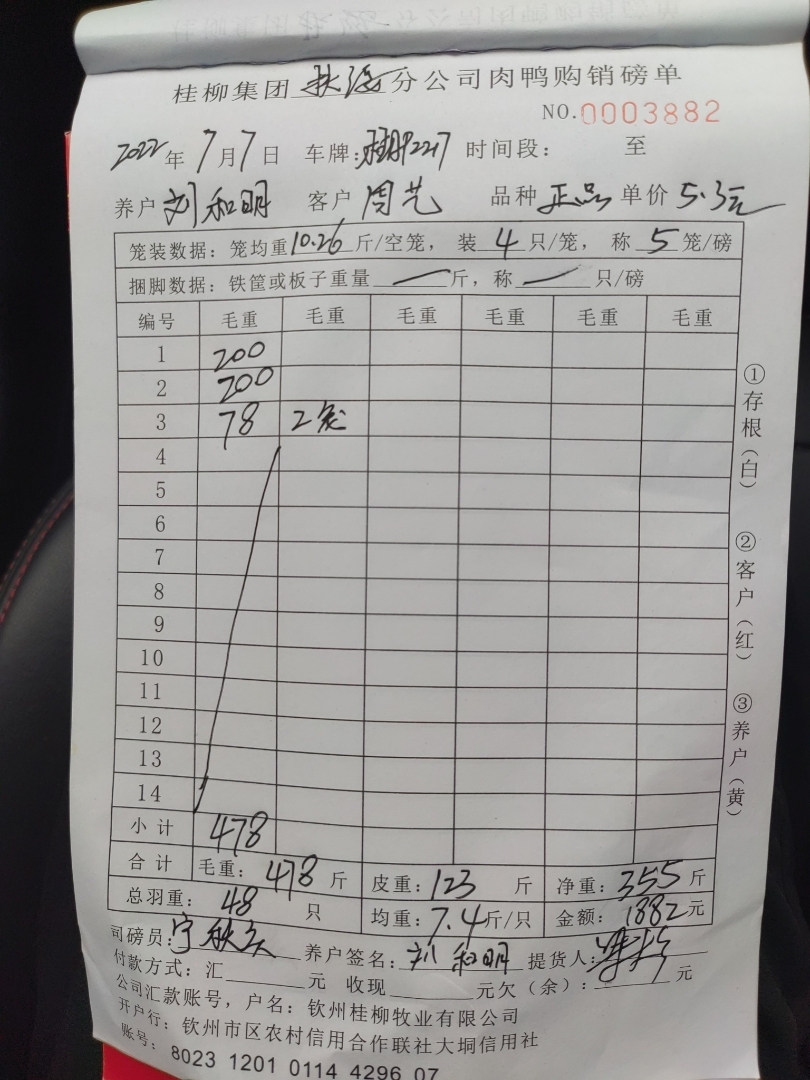 桂柳集团 分公司肉鸭购销磅单
NO.0003882
2022年7月7日 车牌: 2217 时间段: 至
养户 刘和明 客户 周艺 品种 正品 单价 5.3元
笼装数据:笼均重10.26斤/空笼,装4只/笼,称5笼/磅
捆脚数据:铁筐或板子重量 一 斤,称 一 只/磅
编号 毛重 毛重 毛重 毛重 毛重 毛重
1 200
2 200
3 78 2笼
4
5
6
7
8
9
10
11
12
13
14
小计 478
合计 毛重:478斤 皮重:123斤 净重:355斤
总羽重:48只 均重:7.4斤/只 金额:1882元
司磅员: 养户签名:刘和明 提货人:
付款方式:汇 元 收现 元欠(余): 元
公司汇款账号,户名:钦州桂柳牧业有限公司
开户行:钦州市区农村信用合作联社大垌信用社
账号:8023 1201 0114 4296 07
①存根(白)
②客户(红)
③养户(黄)